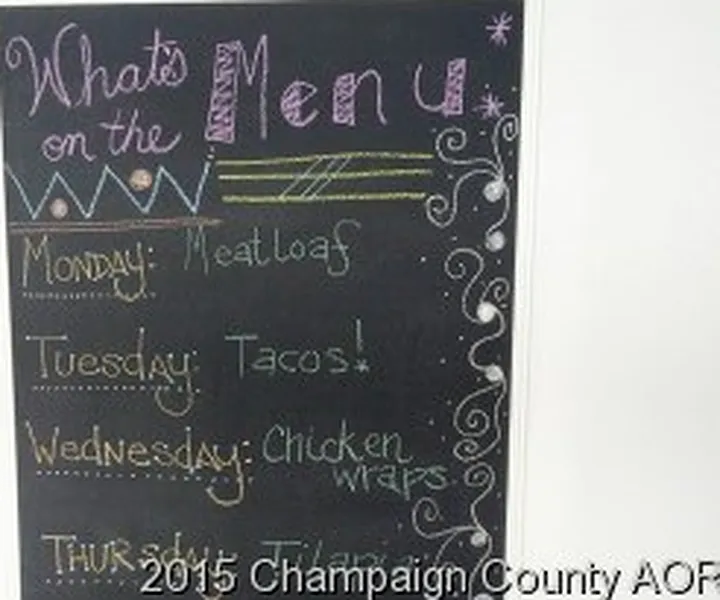 What's on the Menu
Monday: Meatloaf
Tuesday: Tacos!
Wednesday: Chicken wraps
Thursday: Tilapia
2015 Champaign County AOR